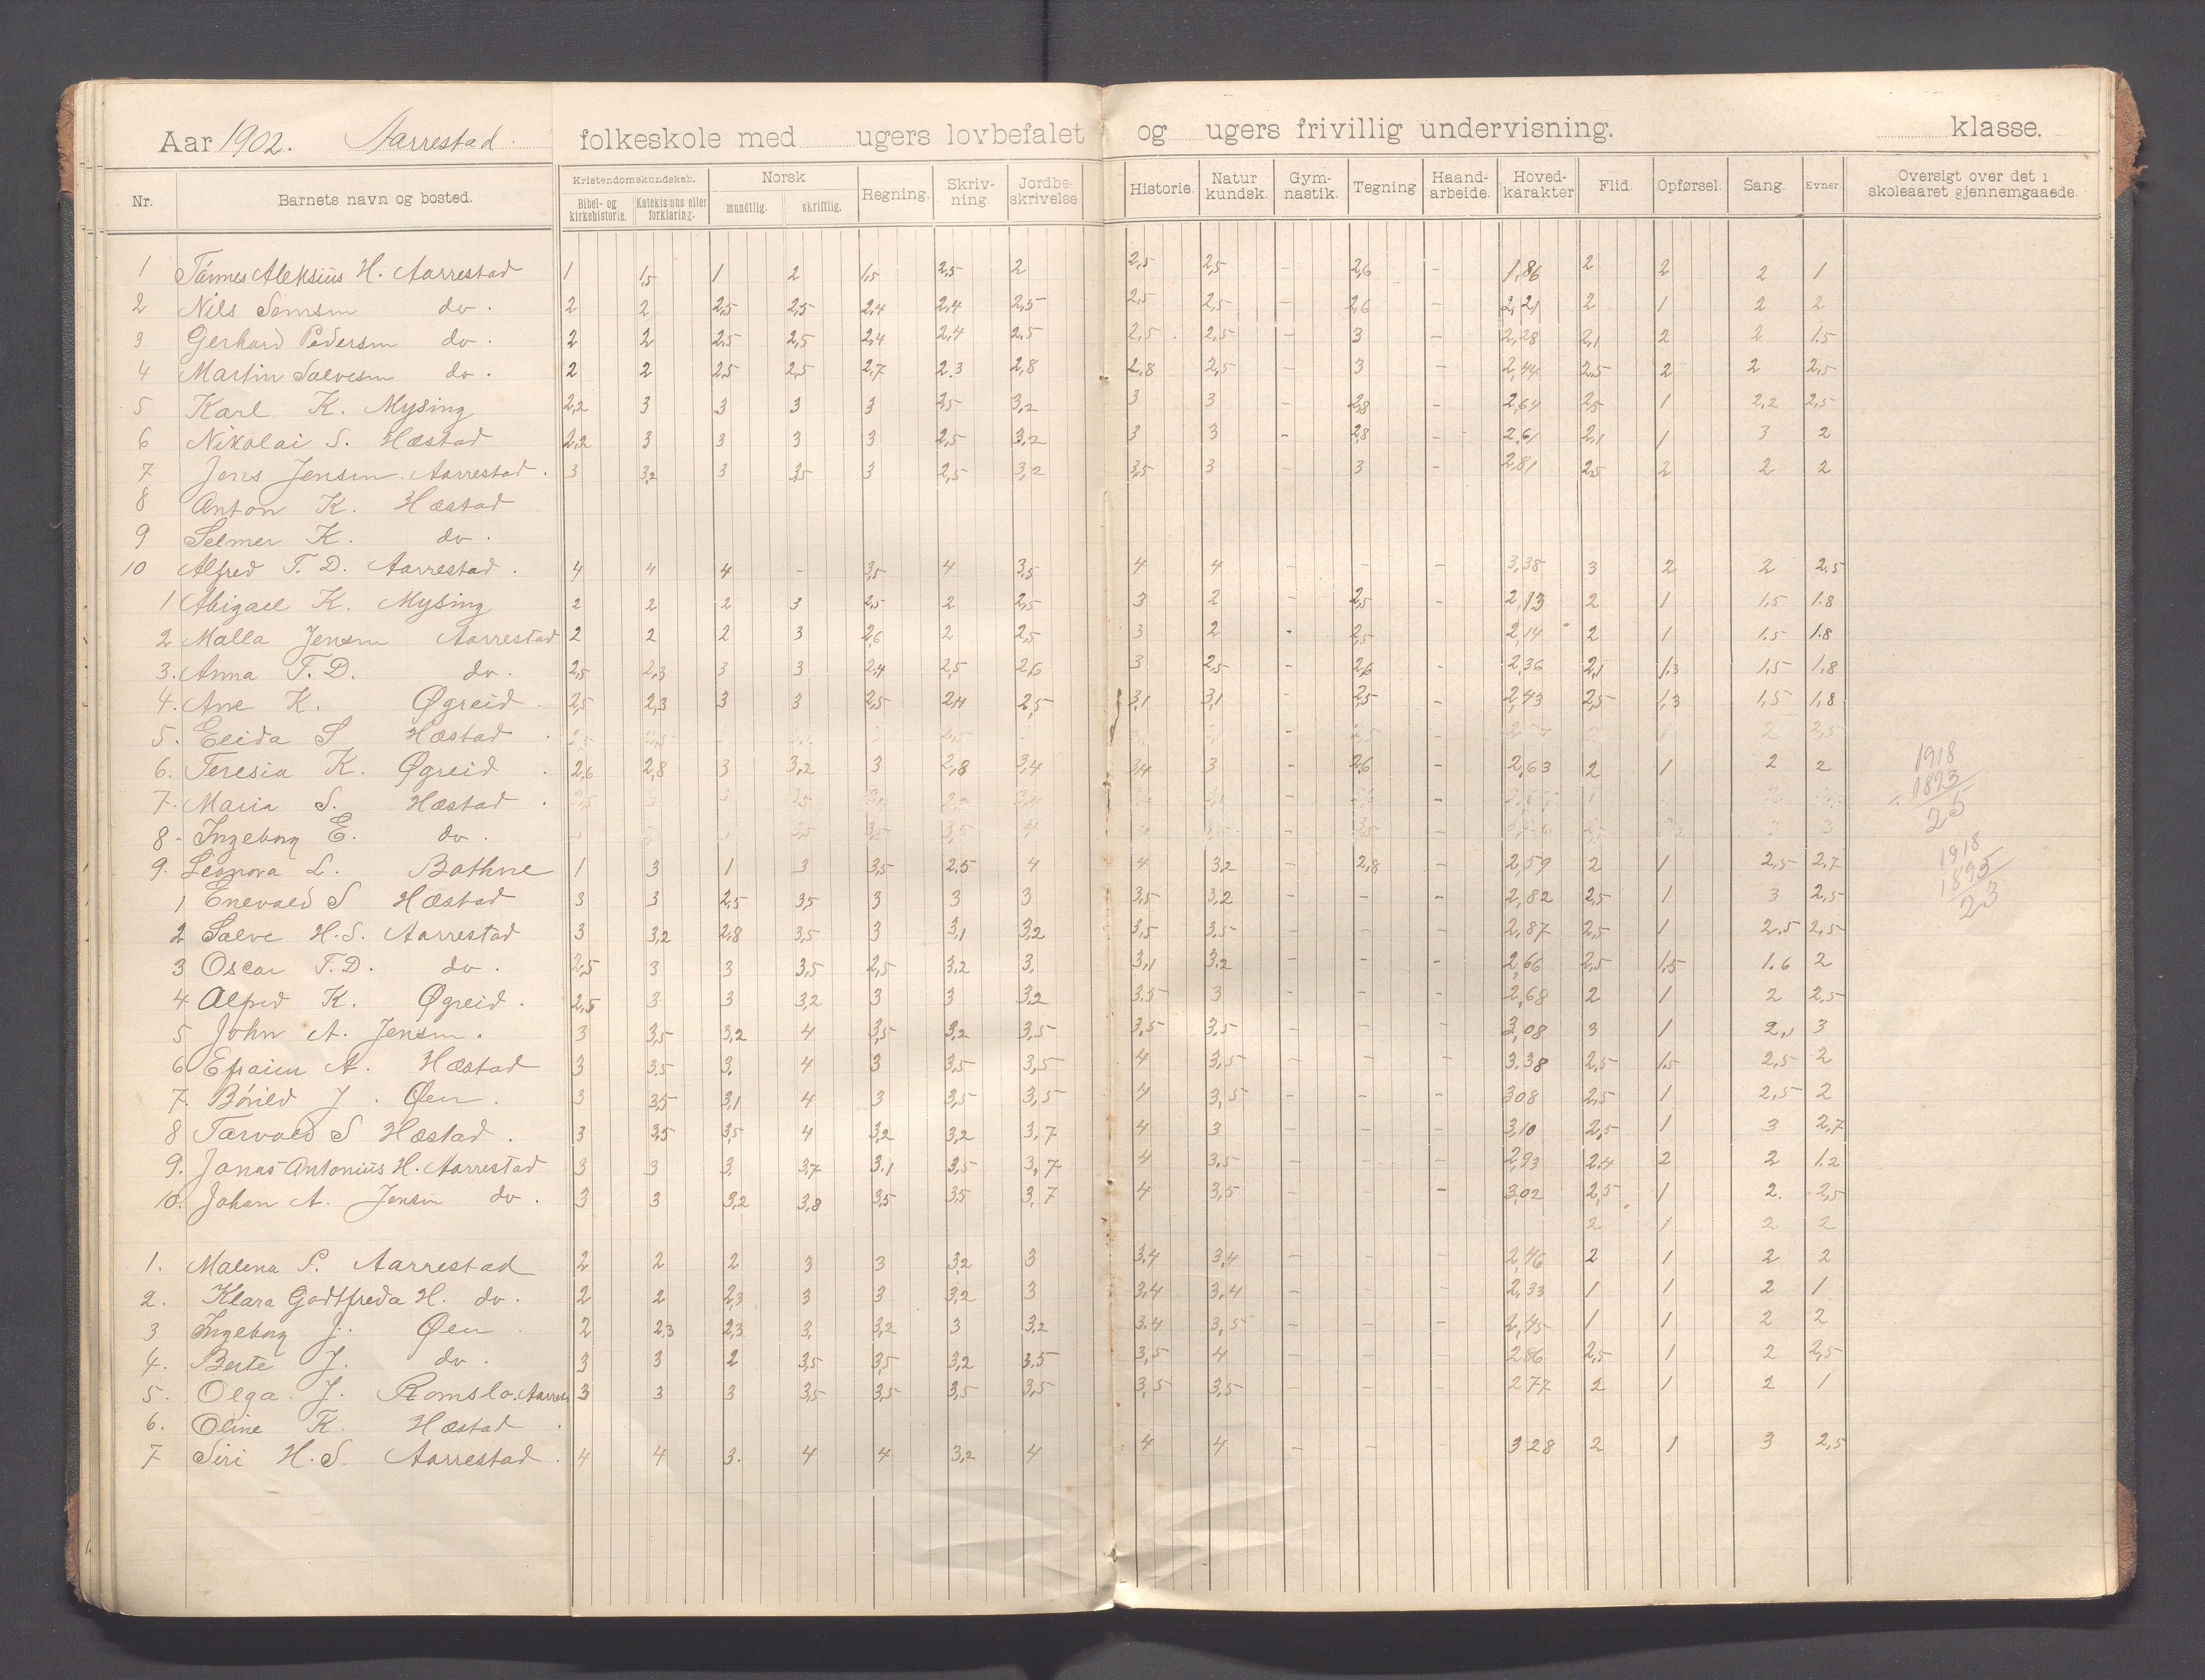 Aar 1902. Aarrestad folkeskole med ugers lovbefalet og ugers frivillig undervisning. klasse.
Nr. Barnets navn og bosted. Kristendomskundskab. Bibel- og kirkehistorie. Katekismus eller forklaring. Norsk mundtlig. skriftlig. Regning. Skriv-ning. Jordbe-skrivelse. Historie. Natur kundsk. Gym-nastik. Tegning Haand-arbeide. Hoved-karakter Flid. Opførsel. Sang. Evner. Oversigt over det i skoleaaret gjennemgaaede.
1 Tønnes Aleksius H. Aarrestad 1 1,5 1 2 1,5 2,5 2 2,5 2,5 - 2,6 - 1,86 2 2 2 1
2 Nils Samsen do. 2 2 2,5 2,5 2,4 2,4 2,5 2,5 2,5 - 2,6 - 2,21 2 1 2 2
3 Gerhard Pedersen do. 2 2 2,5 2,5 2,4 2,4 2,5 2,5 2,5 - 3 - 2,28 2,1 2 2 1.5
4 Martin Salvesen do. 2 2 2,5 2,5 2,7 2.3 2,8 2,8 2,5 - 3 - 2,44 2,5 2 2 2,5
5 Karl K. Mysing 2,2 3 3 3 3 2,5 3,2 3 3 - 2,8 - 2,64 2,5 1 2,2 2,5
6 Nikolai S. Hæstad 2,2 3 3 3 3 2,5 3.2 3 3 - 2,8 - 2,61 2,1 1 3 2
7 Jens Jensen. Aarrestad. 3 3,2 3 3,5 3 2,5 3,2 3,5 3 - 3 - 2,81 2,5 2 2 2
8 Anton K. Hæstad
9 Selmer K. do.
10 Alfred T. D. Aarrestad. 4 4 4 - 3,5 4 3,5 4 4 - - - 3,38 3 2 2 2.5
1 Abigael K. Mysing 2 2 2 3 2,5 2 2,5 3 2 - 2,5 - 2,13 2 1 1,5 1.8
2 Malla Jensen Aarrestad 2 2 2 3 2,6 2 2,5 3 2 - 2,5 2,14 2 1 1.5 1.8
3. Anna T. D. do. 2,5 2,3 3 3 2,4 2,5 2,6 3 2,5 - 2,6 - 2,36 2,1 1.3 1,5 1,8
4. Ane K. Øgreid. 2,5 2,3 3 3 2,5 2,4 2,5 3,1 3,1 - 2,5 - 2,43 2,5 1,3 1,5 1,8
5. Elida S Hæstad. 2 2,5
6. Teresia K. Øgreid. 2,6 2,8 3 3,2 3 2,8 3,4 3,4 3 - 2,6 - 2,63 2 1 2 2
7. Maria S. Hæstad.
8. Ingeborg E. do.
9. Leonora L. Bathne 1 3 1 3 3,5 2.5 4 4 3,2 - 2,8 - 2,59 2 1 2,5 2,7
1 Enevald S Hæstad 3 3 2,5 3,5 3 3 3 3,5 3,2 - - - 2,82 2,5 1 3 2,5
2 Salve H.S. Aarrestad 3 3,2 2,8 3,5 3 3,1 3,2 3,5 3,5 - - - 2,87 2,5 1 2.5 2,5
3 Oscar T.D. do. 2,5 3 3 3,5 2,5 3,2 3. 3,1 3.2 - - - 2,66 2,5 1,5 1.6 2
4 Alfred K. Øgreid. 2,5 3 3 3,2 3 3 3.2 3.5 3 - - - 2,68 2 1 2 2,5
5 John A. Jensen. 3 3,5 3,2 4 3,5 3,2 3,5 3,5 3,5 - - - 3,08 3 1 2,1 3
6 Efraim A. Hæstad 3 3.5 3. 4 3 3,5 3,5 4 3,5 - - - 3.38 2,5 1,5 2,5 2
7. Børild J. Øen. 3 3,5 3,1 4 3 3,5 3,5 4 3,5 - - - 3 08 2,5 1 2,5 2
8 Tarvald S Hæstad. 3 3,5 3,5 4 3,2 3,2 3,7 4 3 - - - 3,10 2,5 1 3 2,7
9. Jonas Antonius H. Aarrestad 3 3 3 3,7 3.1 3,5 3,7 4 3,5 - - - 2,93 2,4 2 2 1.2
10. Johan A. Jensen do. 3 3 3,2 3,8 3,5 3,5 3,7 4 3,5 - - - 3,02 2,5 1 2. 2,5
2 1 2 2
1. Malena P. Aarrestad 2 2 2 3 3 3,2 3 3.4 3,4 - - - 2,46 2 1 2 2
2. Klara Godtfreda H. do. 2 2 2,3 3 3 3,2 3 3,4 3,4 - - - 2,33 1 1 2 1
3 Ingeborg J. Øen 2 2,3 2,3 3. 3,2 3 3,2 3.4 3,5 - - - 2,45 1 1 2 2
4. Berte J. do. 3 3 2 3,5 3,5 3,2 3.5 3,5 4 - - - 2 86 2,5 1 2 2,5
5. Olga. J. Romslo. Aarrest 3 3 3 3,5 3,5 3,5 3,5 3,5 3,5 - - - 2 77 2 1 2 1
6. Oline K. Hæstad.
7 Siri H.S. Aarrestad. 4 4 3. 4 4 3,2 4 4 4 - - - 3 28 2 1 3 2,5
1918
1893
25
1918
1895
23